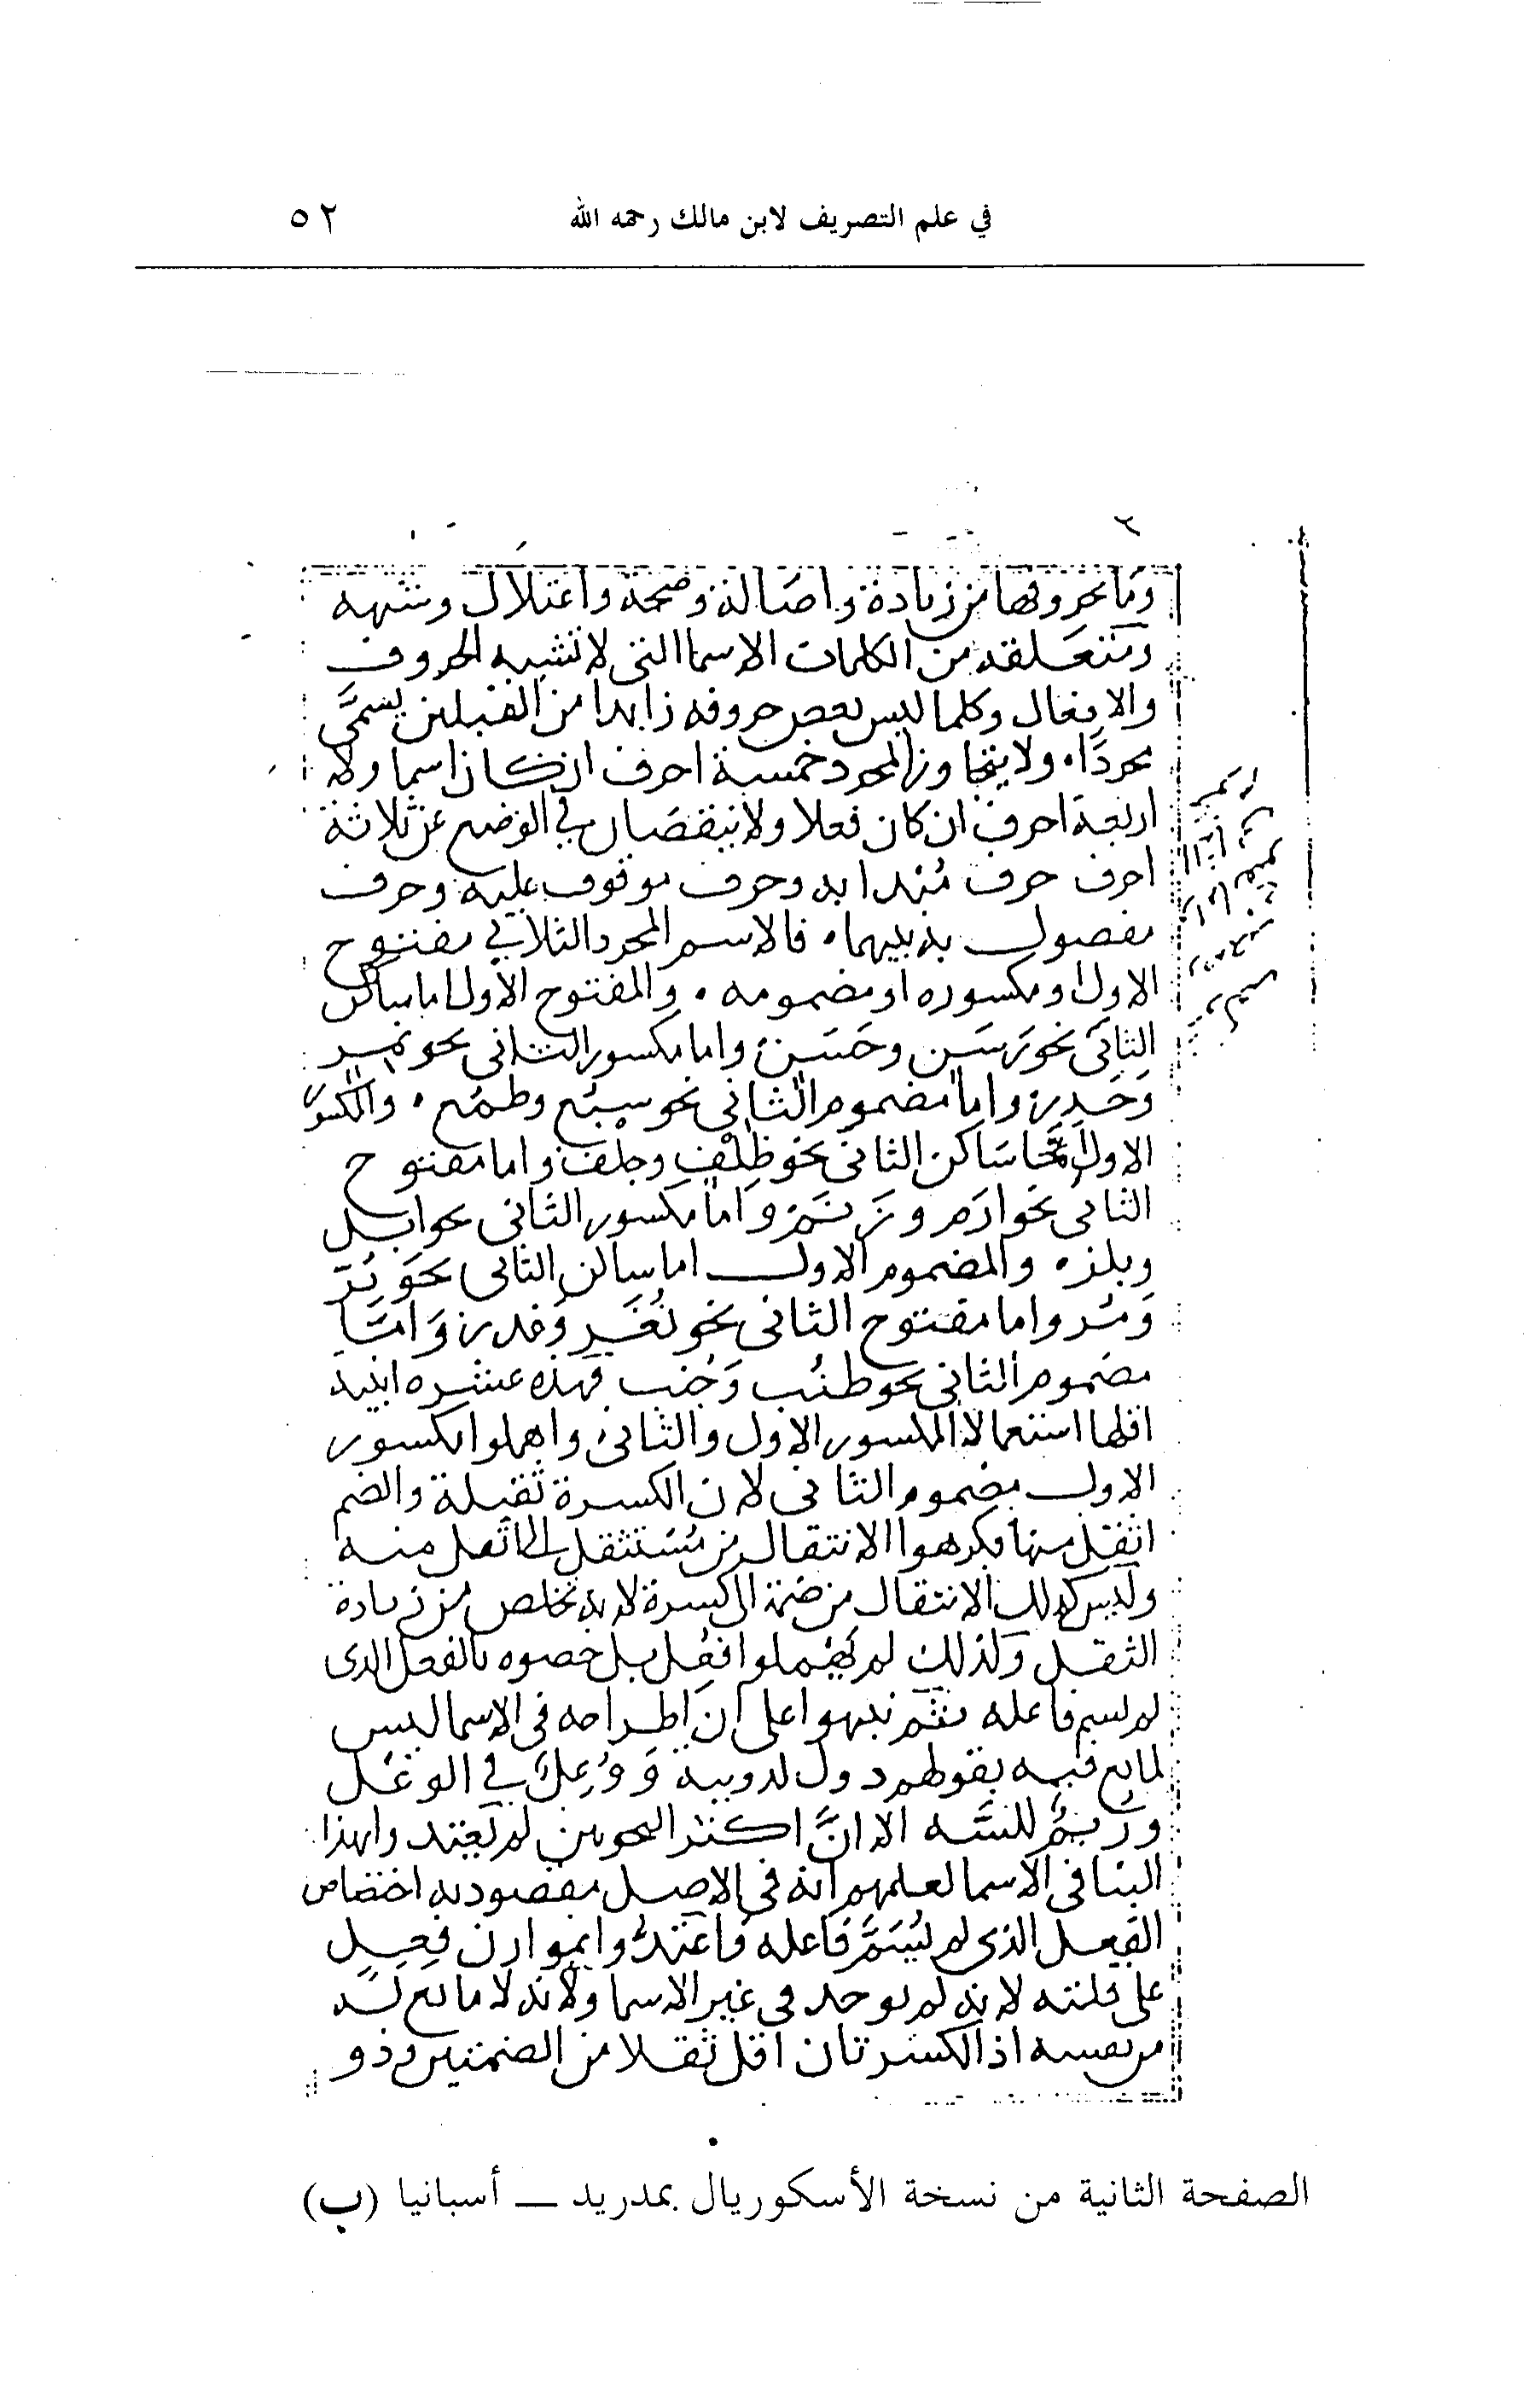 في علم التصريف لابن مالك رحمه الله
٥٢
٢
وما بحروفها من زيادة واصالة وصحة واعتلال وشبهه
ومتعلقه من الكلمات الاسما التى لا تشبه الحروف
والافعال وكلما ليس بعض حروفه زايدا من القبيلين يسمَّى
مجردًا ولا يتجاوز المجرد خمسة احرف ان كان اسما ولا
اربعة احرف ان كان فعلا ولا ينقصان في الوضع عن ثلاثة
احرف حرف مُبتدا به وحرف موقوف عليه وحرف
مفصول به بينهما فالاسم المجرد الثلاثي مفتوح
الاول او مكسوره او مضمومه والمفتوح الاول اما ساكن
الثاني نحو وحَسَن واما مكسور الثانى نحو نمر
وحَذِر واما مضموم الثانى نحو سبُع وطمُع والمكسور
الاول اما ساكن الثانى نحو ظِلْف وجلف واما مفتوح
الثانى نحو ارَم واما مكسور الثانى نحو ابل
وبلز والمضموم الاول اما ساكن الثانى نحو بُرّ
ومُر واما مفتوح الثانى نحو نُغَر وغدر وَامَّا
مضموم الثانى نحو طنُب وَجُنب فهذه عشره ابنيه
اقلها استعمالا المكسور الاول والثانى واهملوا مكسور
الاول مضموم الثانى لان الكسرة ثقيلة والضم
اثقل منها فكرهوا الانتقال من مُسْتثقل الى اثقل منه
وليس كذلك الانتقال من ضمة الى كسرة لانه تخلص من زيادة
الثقل ولذلك لم يُهملوا فُعِل بل خصوه بالفعل الذى
لم يسم فاعله ثم نبهوا على ان اطراحه فى الاسما ليس
لمانع فيه بقولهم دول لدويبة وَوُعِلٌ في الوعْل
ورُئِمٌ للسَّه الا انَّ اكثر النحويين لم يعتدوا بهذا
البنا فى الاسما لعلمهم انه فى الاصل مقصود به اختصاص
الفعل الذى لم يُسَمَّ فاعله واعتدُّوا بموازن فِعِلٍ
على قلته لانه لم يوجد فى غير الاسما ولانه لا مانع له
من نفسه اذ الكسرتان اقل ثقلا من الضمتين وذو
الصفحة الثانية من نسخة الأسكوريال بمدريد ــ أسبانيا (ب)